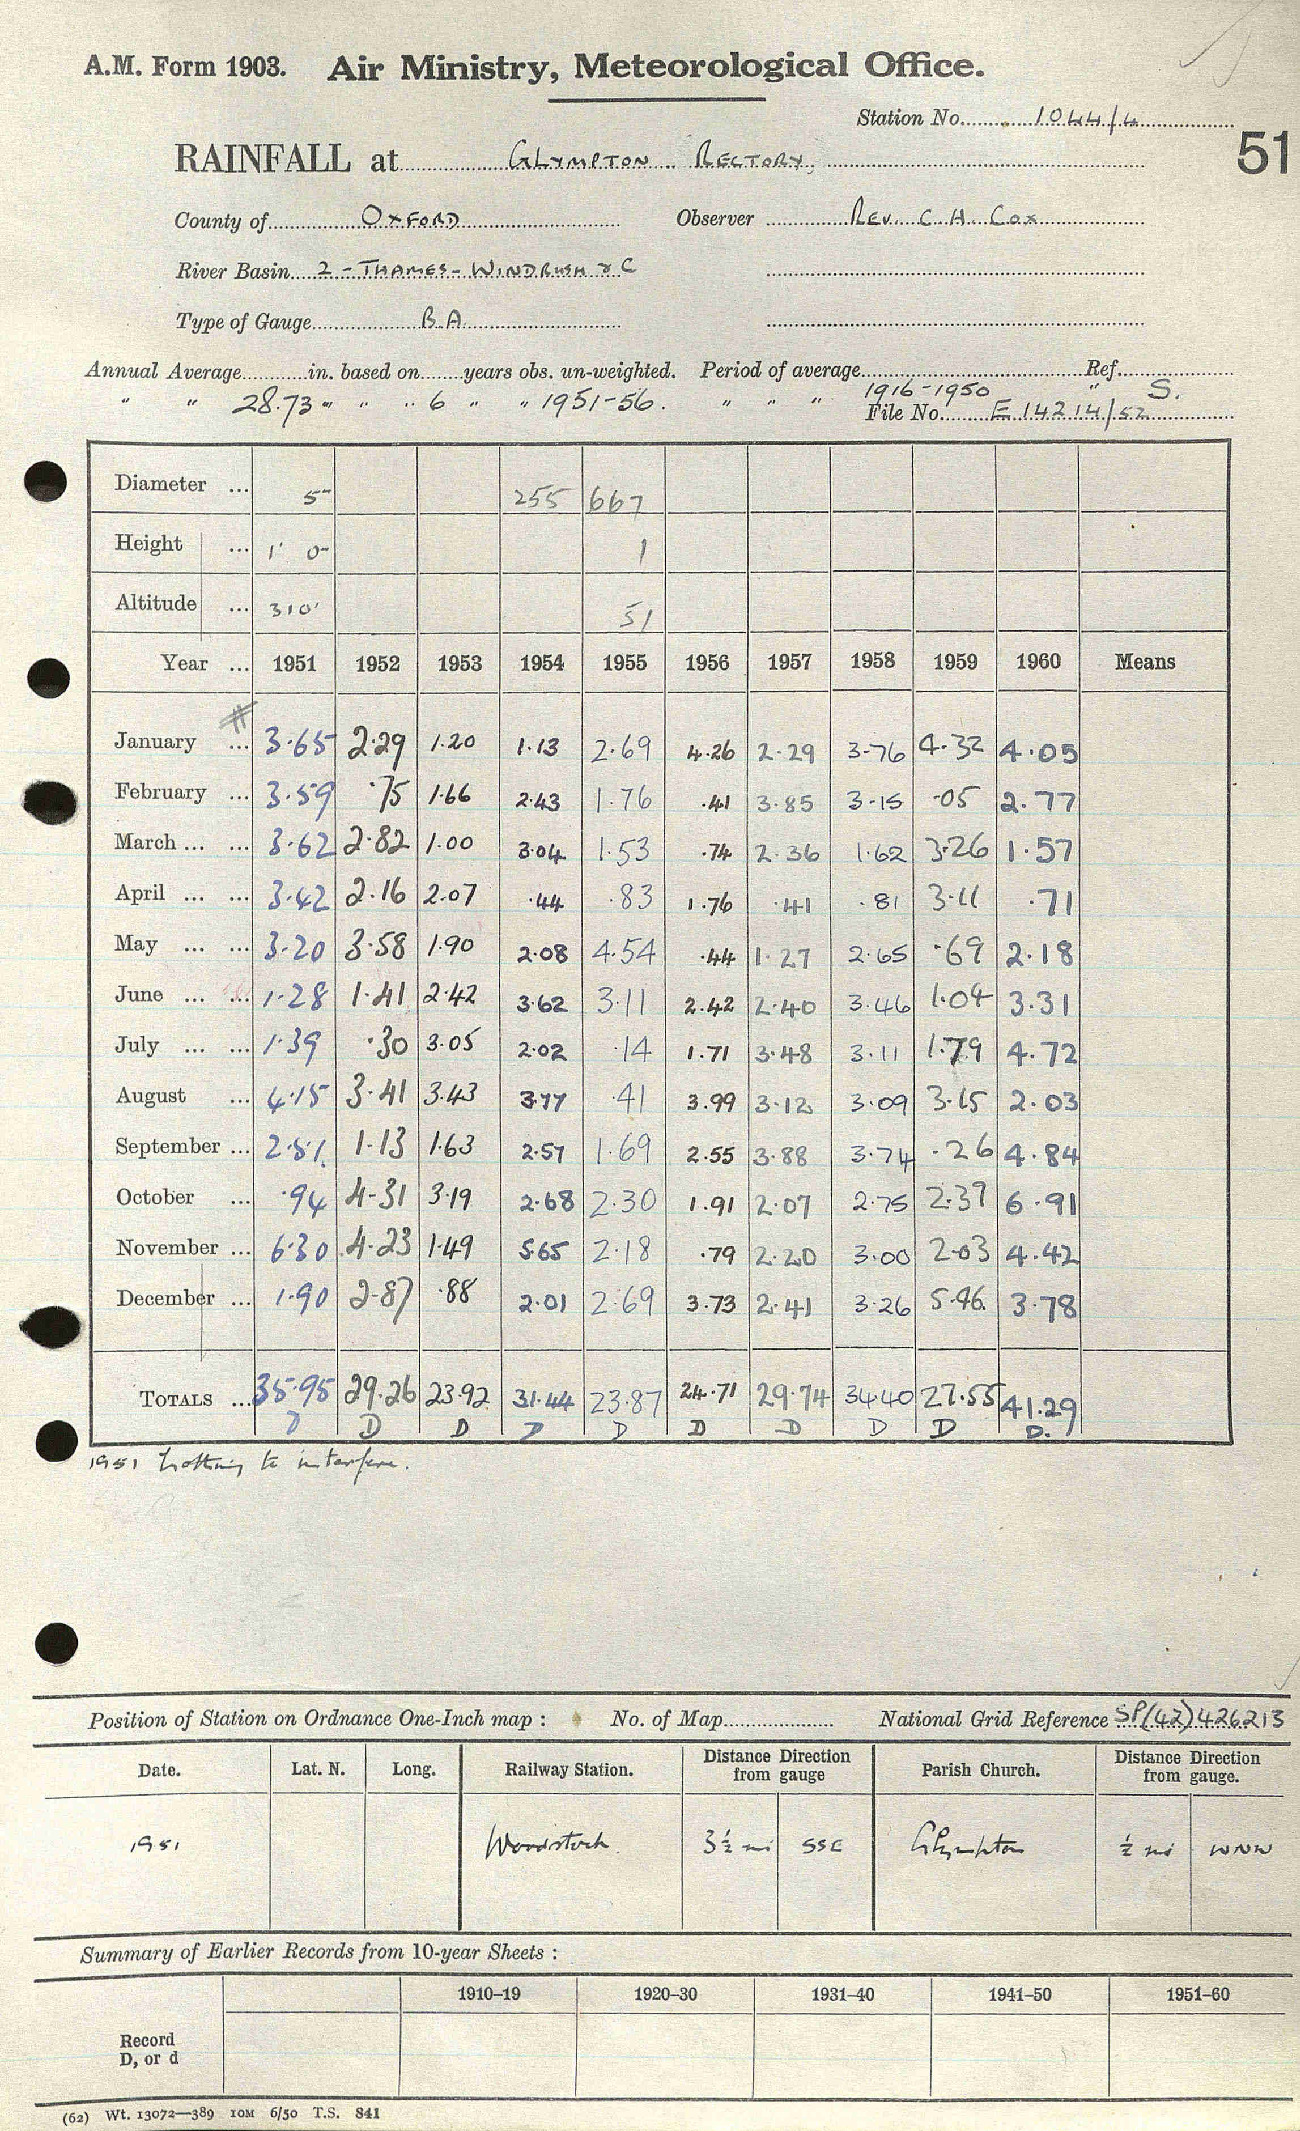 A.M. Form 1903. Air Ministry, Meteorological Office.
Station No. 1044/4
51
RAINFALL at GLYMPTON RECTORY.
County of OXFORD Observer REV. C. H. COX
River Basin 2 - THAMES - WINDRUSH & C
Type of Gauge B.A.
Annual Average in. based on years obs. un-weighted. Period of average Ref.
" " 28.73 " " " 6 " " 1951-56. " " " 1916-1950 " S.
File No. E 14214/52
Diameter ... 5" 255 667
Height ... 1' 0" 1
Altitude ... 310' 51
Year ... 1951 1952 1953 1954 1955 1956 1957 1958 1959 1960 Means
January ... 3.65 2.29 1.20 1.13 2.69 4.26 2.29 3.76 4.32 4.05
February ... 3.59 .75 1.66 2.43 1.76 .41 3.85 3.15 .05 2.77
March ... ... 3.62 2.82 1.00 3.04 1.53 .74 2.36 1.62 3.26 1.57
April ... ... 3.42 2.16 2.07 .44 .83 1.76 .41 .81 3.11 .71
May ... ... 3.20 3.58 1.90 2.08 4.54 .44 1.27 2.65 .69 2.18
June ... ... 1.28 1.41 2.42 3.62 3.11 2.42 2.40 3.46 1.04 3.31
July ... ... 1.39 .30 3.05 2.02 .14 1.71 3.48 3.11 1.79 4.72
August ... 4.15 3.41 3.43 3.77 .41 3.99 3.12 3.09 3.15 2.03
September ... 2.51 1.13 1.63 2.57 1.69 2.55 3.88 3.74 .26 4.84
October ... .94 4.31 3.19 2.68 2.30 1.91 2.07 2.75 2.39 6.91
November ... 6.30 4.23 1.49 5.65 2.18 .79 2.20 3.00 2.03 4.42
December ... 1.90 2.87 .88 2.01 2.69 3.73 2.41 3.26 5.46 3.78
TOTALS ... 35.95 29.26 23.92 31.44 23.87 24.71 29.74 34.40 27.55 41.29
D D D D D D D D D D.
1951 Nothing to interfere.
Position of Station on Ordnance One-Inch map : No. of Map National Grid Reference SP(42)426213
Date. Lat. N. Long. Railway Station. Distance Direction from gauge Parish Church. Distance Direction from gauge.
1951 Woodstock 3½ mi SSE Glympton ½ mi WNW
Summary of Earlier Records from 10-year Sheets :
1910–19 1920–30 1931–40 1941–50 1951–60
Record
D, or d
(62) Wt. 13072—389 10M 6/50 T.S. 841